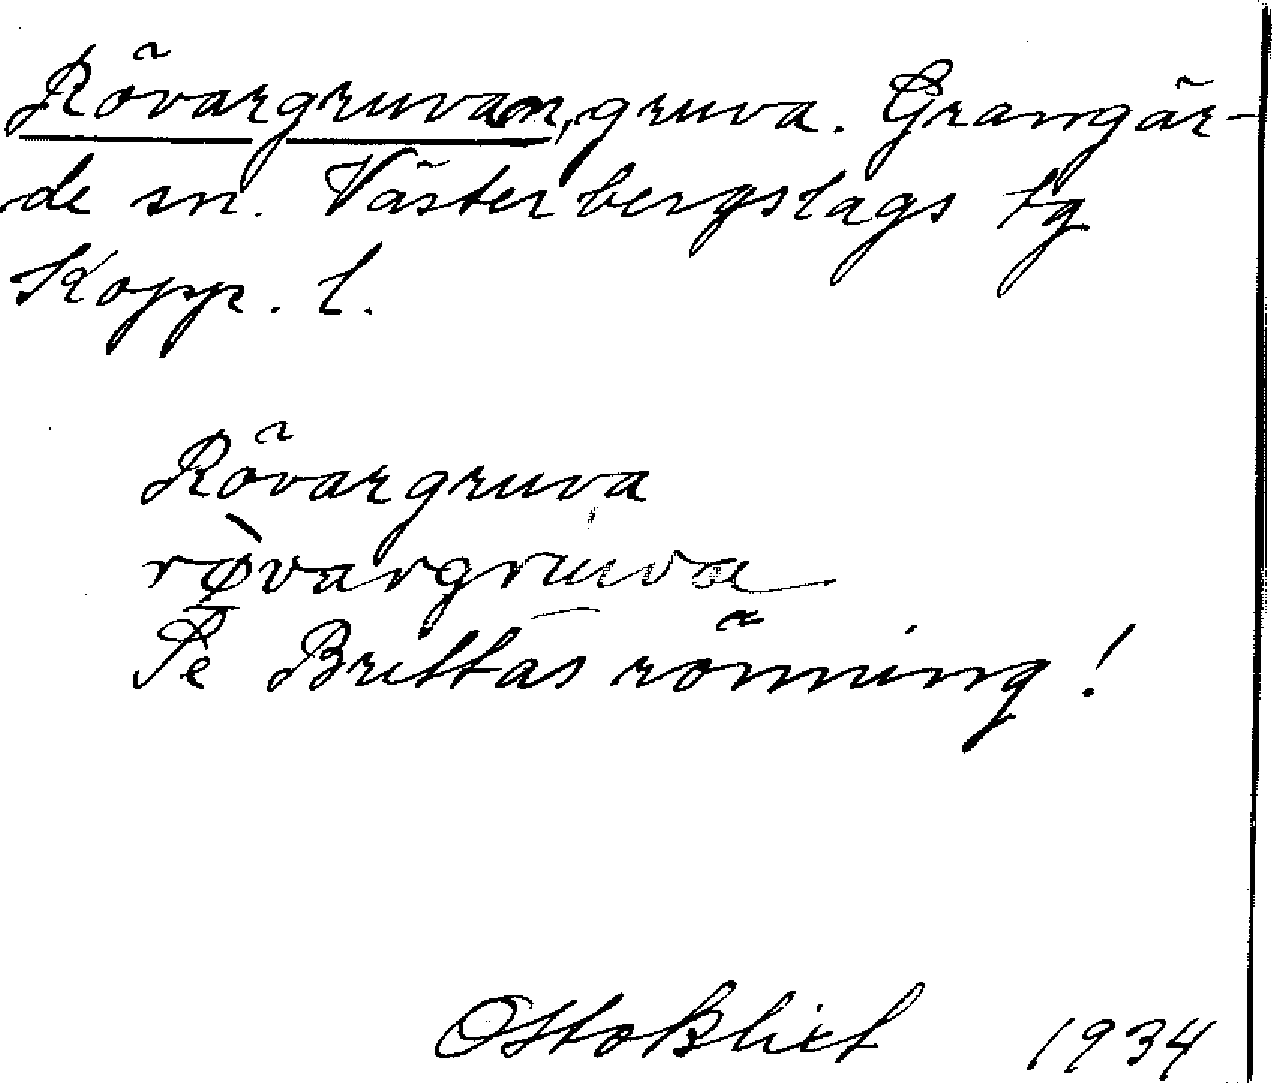 Rövargruvan, gruva. Grangär-
de sn. Västerbergslags tg
Kopp. l.
Rövargruva
rø̀vargruva
Se Brittas rönning!
Otto Blixt 1934